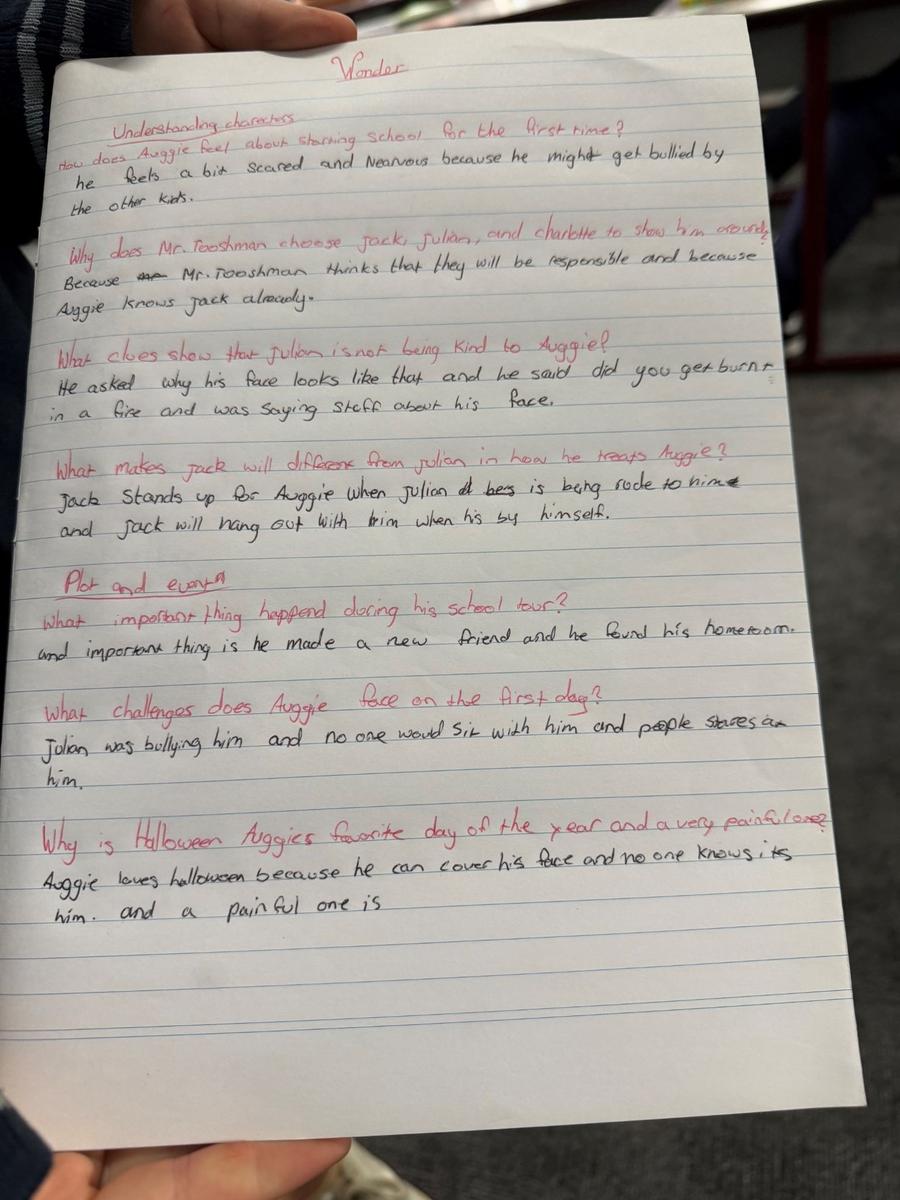 Wonder
Understanding charectors
How does Auggie feel about starning school for the first time?
he feels a bit scared and Nearvous because he might get bullied by
the other kids.
Why does Mr. Tooshman choose Jack, Julian, and charlotte to show him around?
Because Mr. Tooshman thinks that they will be responsible and because
Auggie knows Jack already.
What clues show that Julian is not being kind to Auggie?
He asked why his face looks like that and he said did you get burnt
in a fire and was saying stuff about his face.
What makes Jack will different from Julian in how he treats Auggie?
Jack Stands up for Auggie when Julian is being rude to him
and Jack will hang out with him when his by himself.
Plot and events
What important thing happend during his school tour?
and important thing is he made a new friend and he found his homeroom.
What challenges does Auggie face on the first day?
Julian was bullying him and no one would sit with him and people stares
him.
Why is Halloween Auggies favorite day of the year and a very painful one?
Auggie loves halloween because he can cover his face and no one knows its
him. and a painful one is